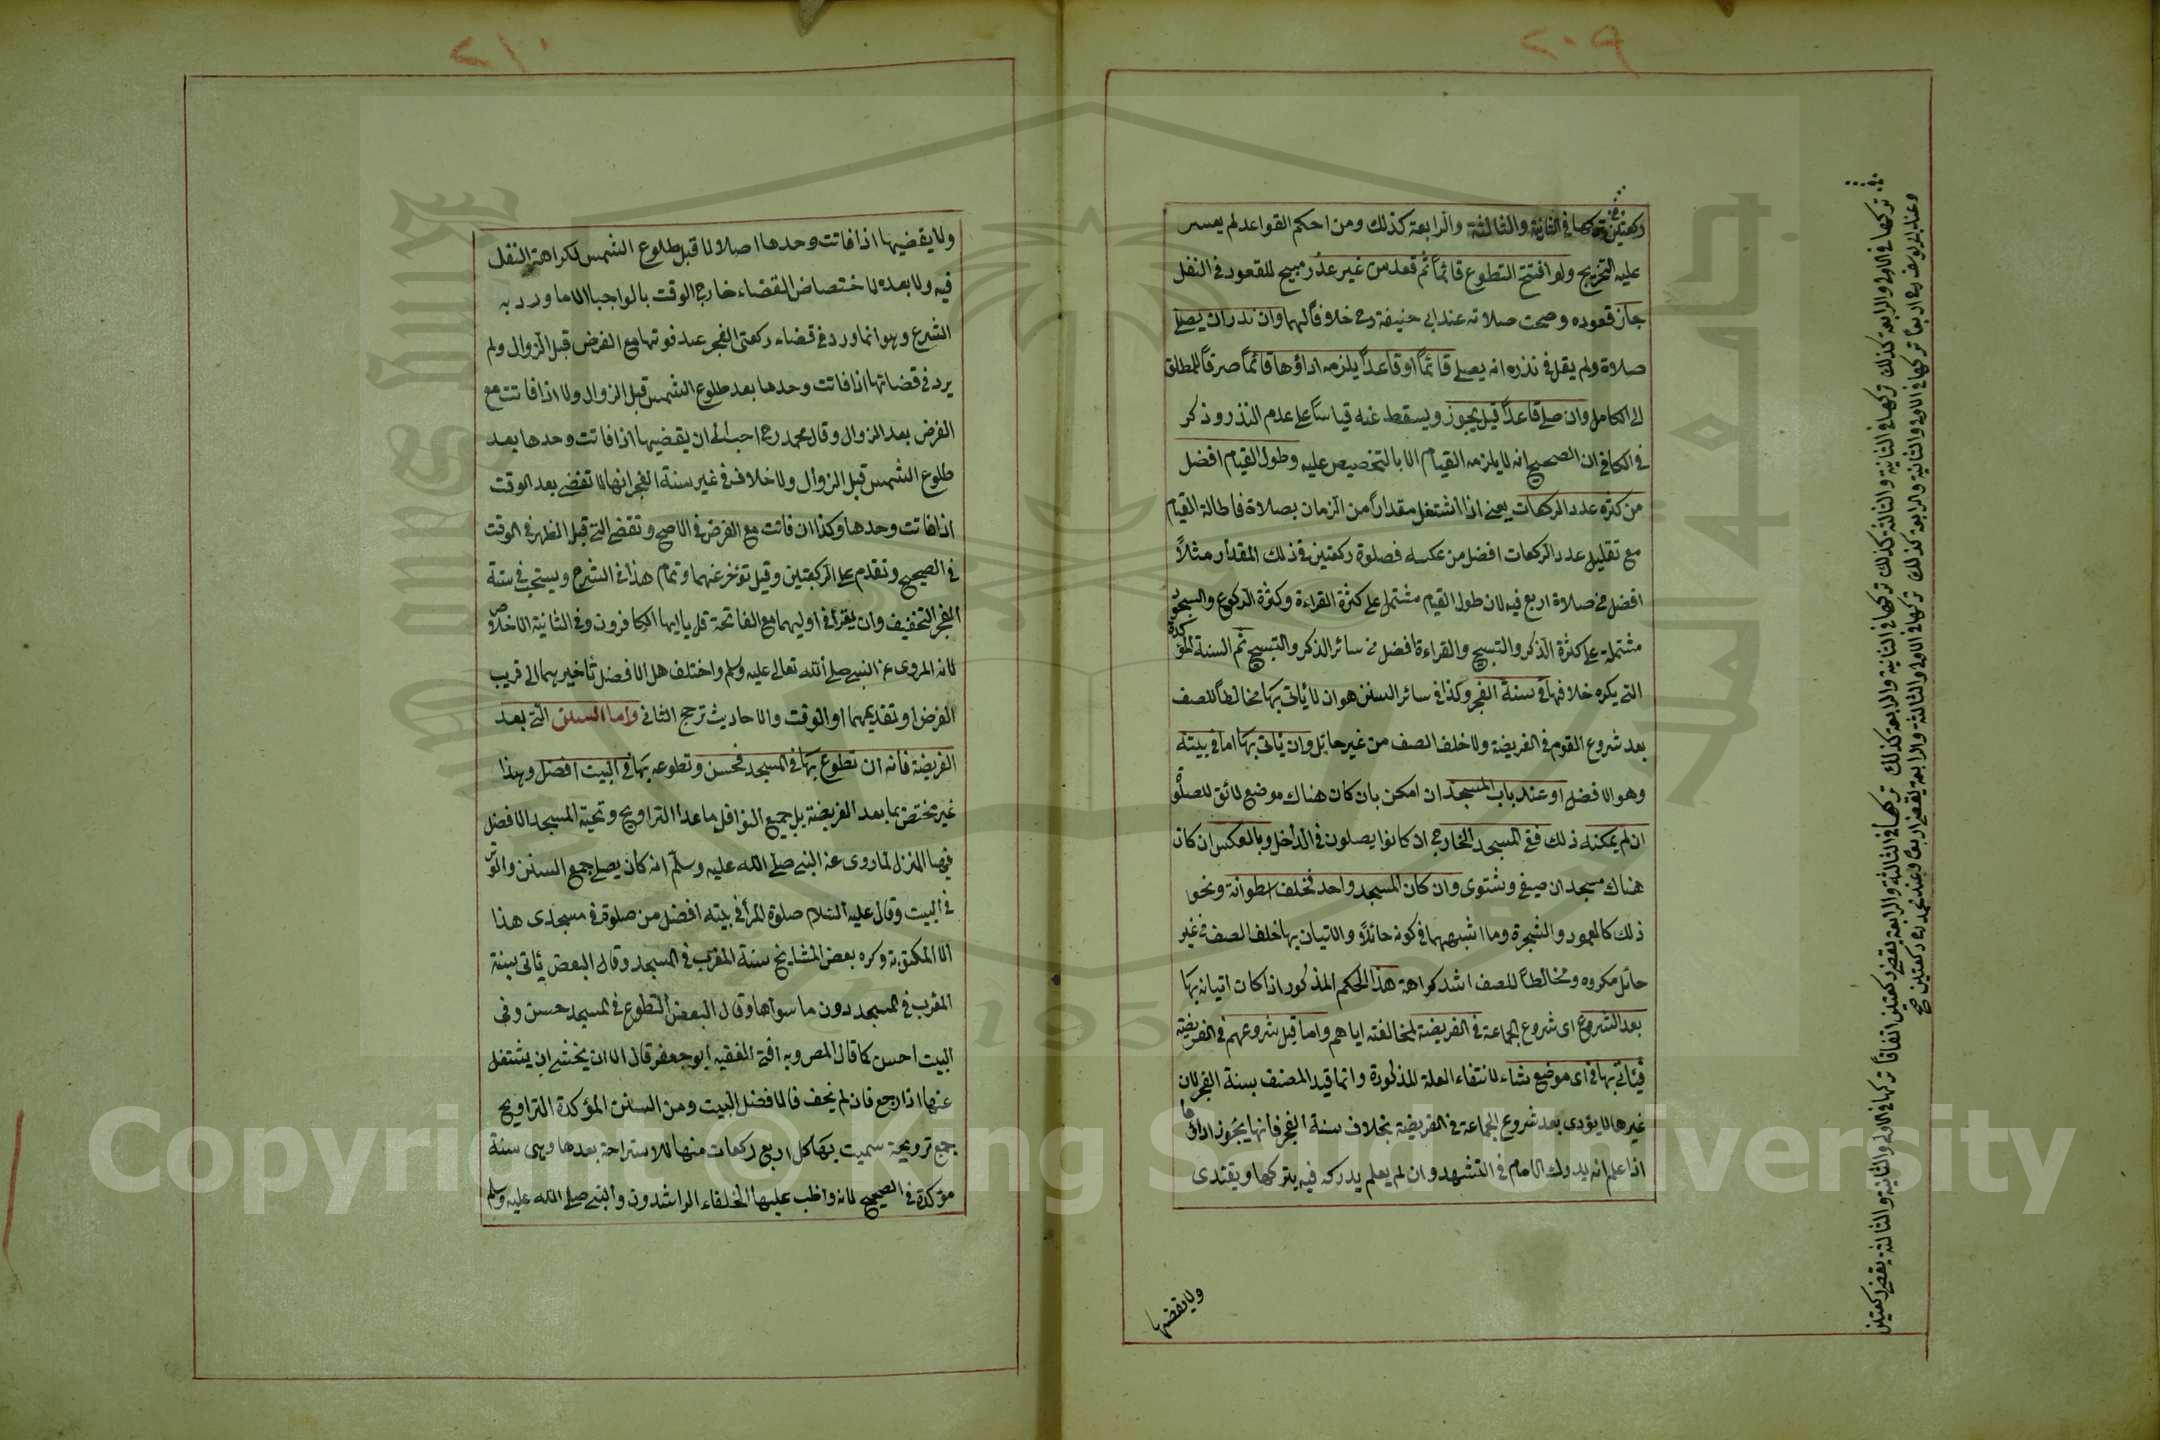 ٢٠٩
ركعتين تركها في الثانية والثالثة والرابعة كذلك ومن احكم القواعد لم يعسر
عليه التخريج ولو افتتح التطوع قائماً ثم قعد من غير عذر مبيح للقعود في النفل
جاز قعوده وصحت صلاته عند ابي حنيفة رح خلافاً لهما وان نذر ان يصلي
صلاة ولم يقل في نذره انه يصلي قائماً او قاعداً يلزمه اداؤها قائماً صرفاً للمطلق
الى الكامل وان صلى قاعداً قيل يجوز ويسقط عنه قياساً على عدم النذر وذكر
في الكافي ان الصحيح انه لا يلزمه القيام الا بالتخصيص عليه وطول القيام افضل
من كثرة عدد الركعات يعني اذا اشتغل مقداراً من الزمان بصلاة فاطالة القيام
مع تقليل عدد الركعات افضل من عكسه فصلوة ركعتين في ذلك المقدار مثلاً
افضل من صلاة اربع فيه لان طول القيام مشتمل على كثرة القراءة وكثرة الركوع والسجود
مشتملة على كثرة الذكر والتسبيح والقراءة افضل من سائر الذكر والتسبيح ثم السنة المؤكدة
التي يكره خلافها في سنة الفجر وكذا في سائر السنن هو ان لا ياتي بها مخالطاً للصف
بعد شروع القوم في الفريضة ولا خلف الصف من غير حائل وان ياتي بها اما في بيته
وهو الافضل او عند باب المسجد ان امكن بان كان هناك موضع لائق للصلوة
ان لم يمكنه ذلك ففي المسجد الخارج ان كانوا يصلون في الداخل وبالعكس ان كان
هناك مسجدان صيفي وشتوى وان كان المسجد واحد فخلف اسطوانة ونحو
ذلك كالعمود والشجرة وما اشبههما في كونه حائلاً والاتيان بها خلف الصف في غير
حائل مكروه ومخالطاً للصف اشد كراهة هذا الحكم المذكور اذا كان اتيانه بها
بعد الشروع اى شروع الجماعة في الفريضة لمخالفته اياهم واما قبل شروعهم في الفريضة
فياتي بها في اى موضع شاء لانتفاء العلة المذكورة وانما قيد المصنف بسنة الفجر لان
غيرها لا يؤدى بعد شروع الجماعة في الفريضة بخلاف سنة الفجر فانها يجوز اداؤها
اذا علم انه يدرك الامام في التشهد وان لم يعلم يدركه فيه يتركها ويقتدى
ولا يقضيها
تركها في الاولى والرابعة كذلك تركها في الثانية والثالثة كذلك تركها في الثانية والرابعة كذلك تركها في الثالثة والرابعة يقضي ركعتين اتفاقاً تركها في الاولى والثانية والثالثة يقضي ركعتين
وعند ابي يوسف رح اربعاً تركها في الاولى والثانية والرابعة كذلك تركها في الاولى والثالثة والرابعة يقضي اربعاً وعند محمد رح ركعتين صح
٢١٠
ولا يقضيها اذا فاتت وحدها اصلا لا قبل طلوع الشمس لكراهة النفل
فيه ولا بعده لاختصاص القضاء خارج الوقت بالواجب الا ما ورد به
الشرع وهو انما ورد في قضاء ركعتى الفجر عند فوتها مع الفرض قبل الزوال ولم
يرد في قضائها اذا فاتت وحدها بعد طلوع الشمس قبل الزوال ولا اذا فاتت مع
الفرض بعد الزوال وقال محمد رح احب الى ان يقضيها اذا فاتت وحدها بعد
طلوع الشمس قبل الزوال ولا خلاف في غير سنة الفجر انها لا تقضى بعد الوقت
اذا فاتت وحدها وكذا ان فاتت مع الفرض في الاصح وتقضى التي قبل الظهر في الوقت
في الصحيح وتقدم على الركعتين وقيل تؤخر عنهما وتمام هذا في الشرح ويستحب في سنة
الفجر التخفيف وان يقرأ في اوليهما مع الفاتحة قل يا ايها الكافرون وفي الثانية الاخلاص
لانه المروى عن النبي صلى الله تعالى عليه وسلم واختلف هل الافضل تاخيرهما الى قريب
الفرض او تقديمهما اول الوقت والاحاديث ترجح الثاني واما السنن التي بعد
الفريضة فانه ان تطوع بها في المسجد فحسن وتطوعه بها في البيت افضل وهذا
غير مختص بما بعد الفريضة بل جميع النوافل ما عدا التراويح وتحية المسجد الافضل
فيها المنزل لما روى عن النبي صلى الله عليه وسلم انه كان يصلي جميع السنن والوتر
في البيت وقال عليه السلام صلوة المرأ في بيته افضل من صلوة في مسجدى هذا
الا المكتوبة وكره بعض المشايخ سنة المغرب في المسجد وقال البعض ياتي بسنة
المغرب في المسجد دون ما سواها وقال البعض التطوع في المسجد حسن وفي
البيت احسن كما قال المص وبه افتى الفقيه ابو جعفر قال الا ان يخشى ان يشتغل
عنها اذا رجع فان لم يخف فالافضل البيت ومن السنن المؤكدة التراويح
جمع ترويحة سميت بها كل اربع ركعات منها للاستراحة بعدها وهى سنة
مؤكدة في الصحيح لانه واظب عليها الخلفاء الراشدون والنبي صلى الله عليه وسلم
Copyright © King Saud University
1957